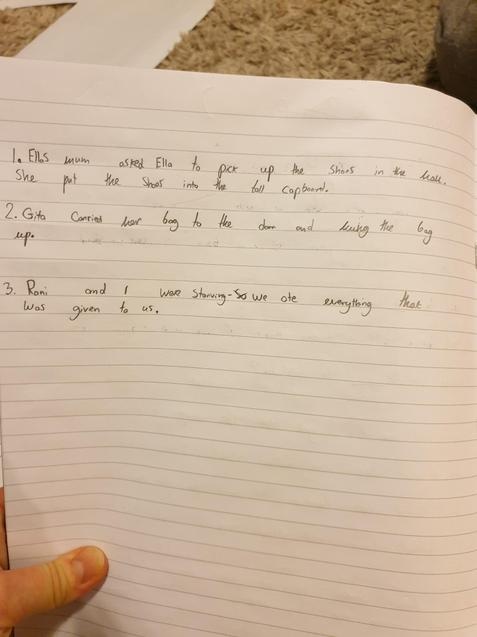 1. Ellas mum asked Ella to pick up the shoes in the hall.
She put the shoes into the tall capboard.
2. Gita Carried her bag to the door and hung the bag
up.
3. Rani and I were Starving - So we ate everything that
was given to us.